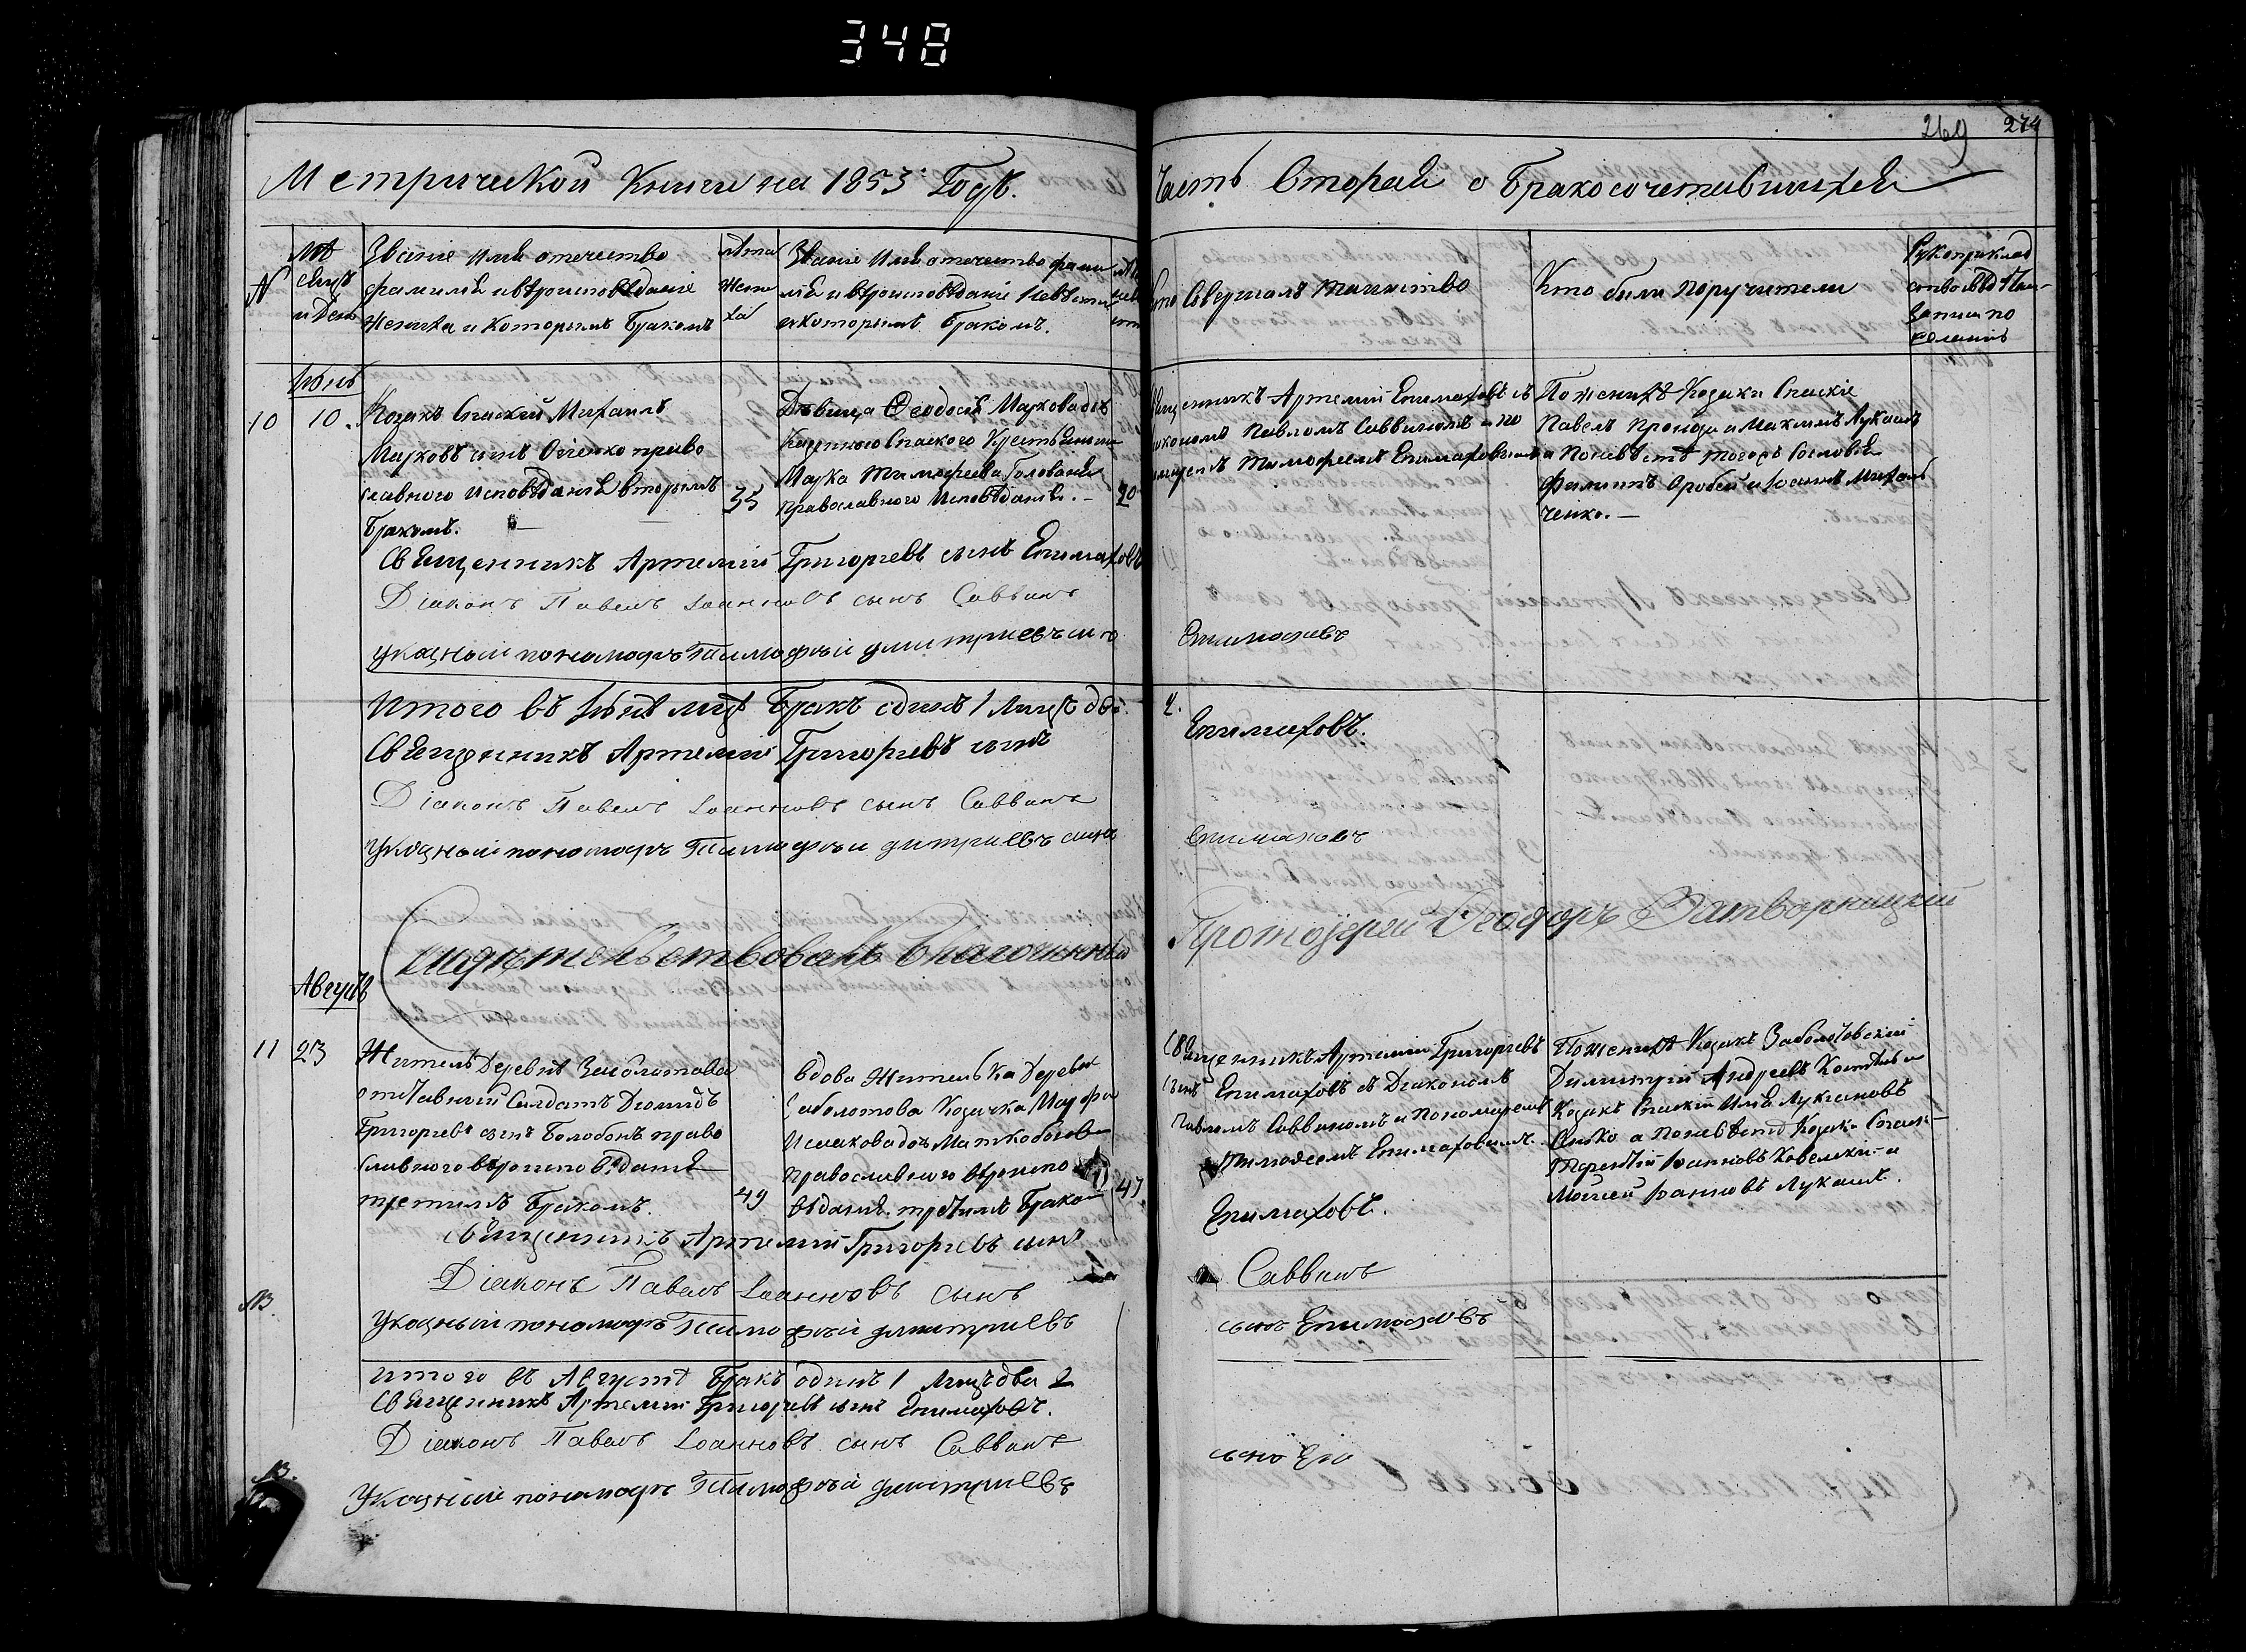 348
269 274
Метрической Книги на 1853 Годъ.
Часть Вторая о Бракосочетавшихся
№
Мѣ
сяцъ
и день
Званіе Имя отечество
фамилія и вѣроисповѣданіе
Жениха и которымъ Бракомъ
лѣта
жени
ха
Званіе Имя отечество фами
лія и вѣроисповѣданіе Невѣсты
и которымъ Бракомъ.
Кто Совершалъ таинство
Кто были Поручители
Рукоприклад
Записи по
желанію
Іюнь
10 10.
Козакъ Спаскій Михаилъ
Марковъ сынъ право
славного Исповѣданія вторымъ
Бракомъ.
35
Дѣвица Ѳеодосія Маркова дочь
Спаского Крестьянина
Марка Тимофеева Голованя
православного Исповѣданія.
20
Священникъ Артемій Епимаховъ съ
Діакономъ Павломъ Саввинымъ и по
номаремъ Тимофеемъ Епимаховымъ
По женихѣ Козаки Спаскіе
Павелъ и Максимъ Лукашъ
а По невѣстѣ тогожъ Сословія
Филиппъ Оробей и Іоаннъ Михаль
ченко.
Священникъ Артемій Григорьевъ сынъ Епимаховъ
Діаконъ Павелъ Іоанновъ сынъ Саввинъ
Указный пономарь Тимофѣй Дмитріевъ сынъ
Епимаховъ
Итого въ Іюнѣ мцѣ Бракъ одинъ 1 Лицъ два 2.
Священникъ Артемій Григорьевъ сынъ
Епимаховъ.
Діаконъ Павелъ Іоанновъ сынъ Саввинъ
Указный пономарь Тимофѣй Дмитріевъ сынъ
Епимаховъ
Свидѣтельствовалъ Благочинный
Протоіерей Ѳеодоръ Затворницкій
Августъ
11 23
Житель Деревнѣ Заболотова
отставный Салдатъ Діомидъ
Григорьевъ сынъ Болобонъ право
славного вѣроисповѣданія
третимъ Бракомъ.
49
Вдова Жителька Деревни
Заболотова Козачка Марфа
Исаакова дочь
православного вѣроиспо
вѣданія третимъ Бракомъ
47
Священникъ Артемій Григорьевъ
сынъ Епимаховъ съ Діакономъ
Павломъ Саввинымъ и Пономаремъ
Тимофеемъ Епимаховымъ.
По женихѣ Козакъ Заболотовскій
Димитрій Андреевъ
Козакъ Спаскій Илія Лукіановъ
а По невѣстѣ Козаки Спаск
Терентій Іоанновъ и
Моисей Іоанновъ Лукашъ.
Священникъ Артемій Григорьевъ сынъ
Епимаховъ.
Діаконъ Павелъ Іоанновъ сынъ
Саввинъ
Указный пономарь Тимофѣй Дмитріевъ
сынъ Епимаховъ
Итого въ Августѣ Бракъ одинъ 1 Лицъ два 2
Священникъ Артемій Григорьевъ сынъ Епимаховъ.
Діаконъ Павелъ Іоанновъ сынъ Саввинъ
Указный пономарь Тимофѣй Дмитріевъ
сынъ